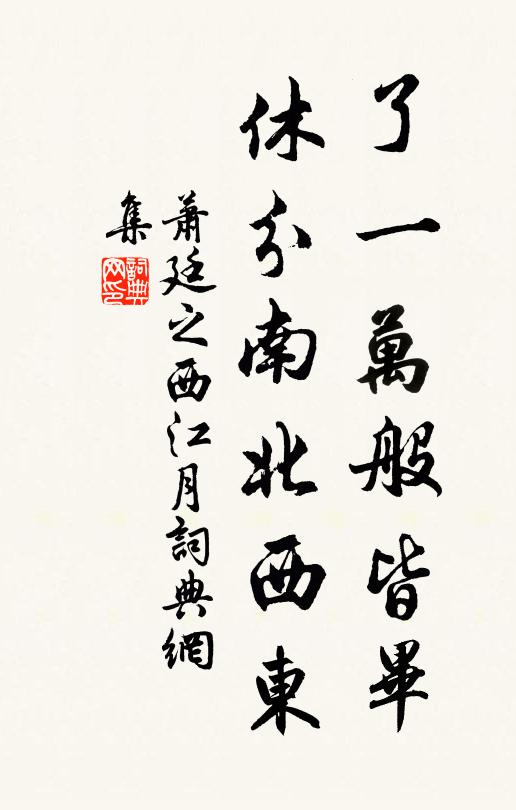 了一萬般皆畢
休分南北西東
蕭廷之西江月詞典網
集
詞典網印